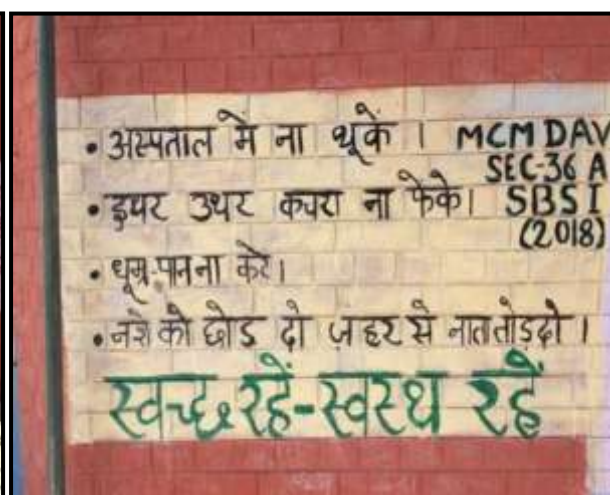 • अस्पताल मे ना थूकें । MCM DAV
SEC-36 A
• इधर उधर कचरा ना फेंके। SBSI
(2018)
• धूम्र-पान ना करे।
• नशे को छोड दो ज़हर से नाता तोड़ दो ।
स्वच्छ रहें-स्वस्थ रहें